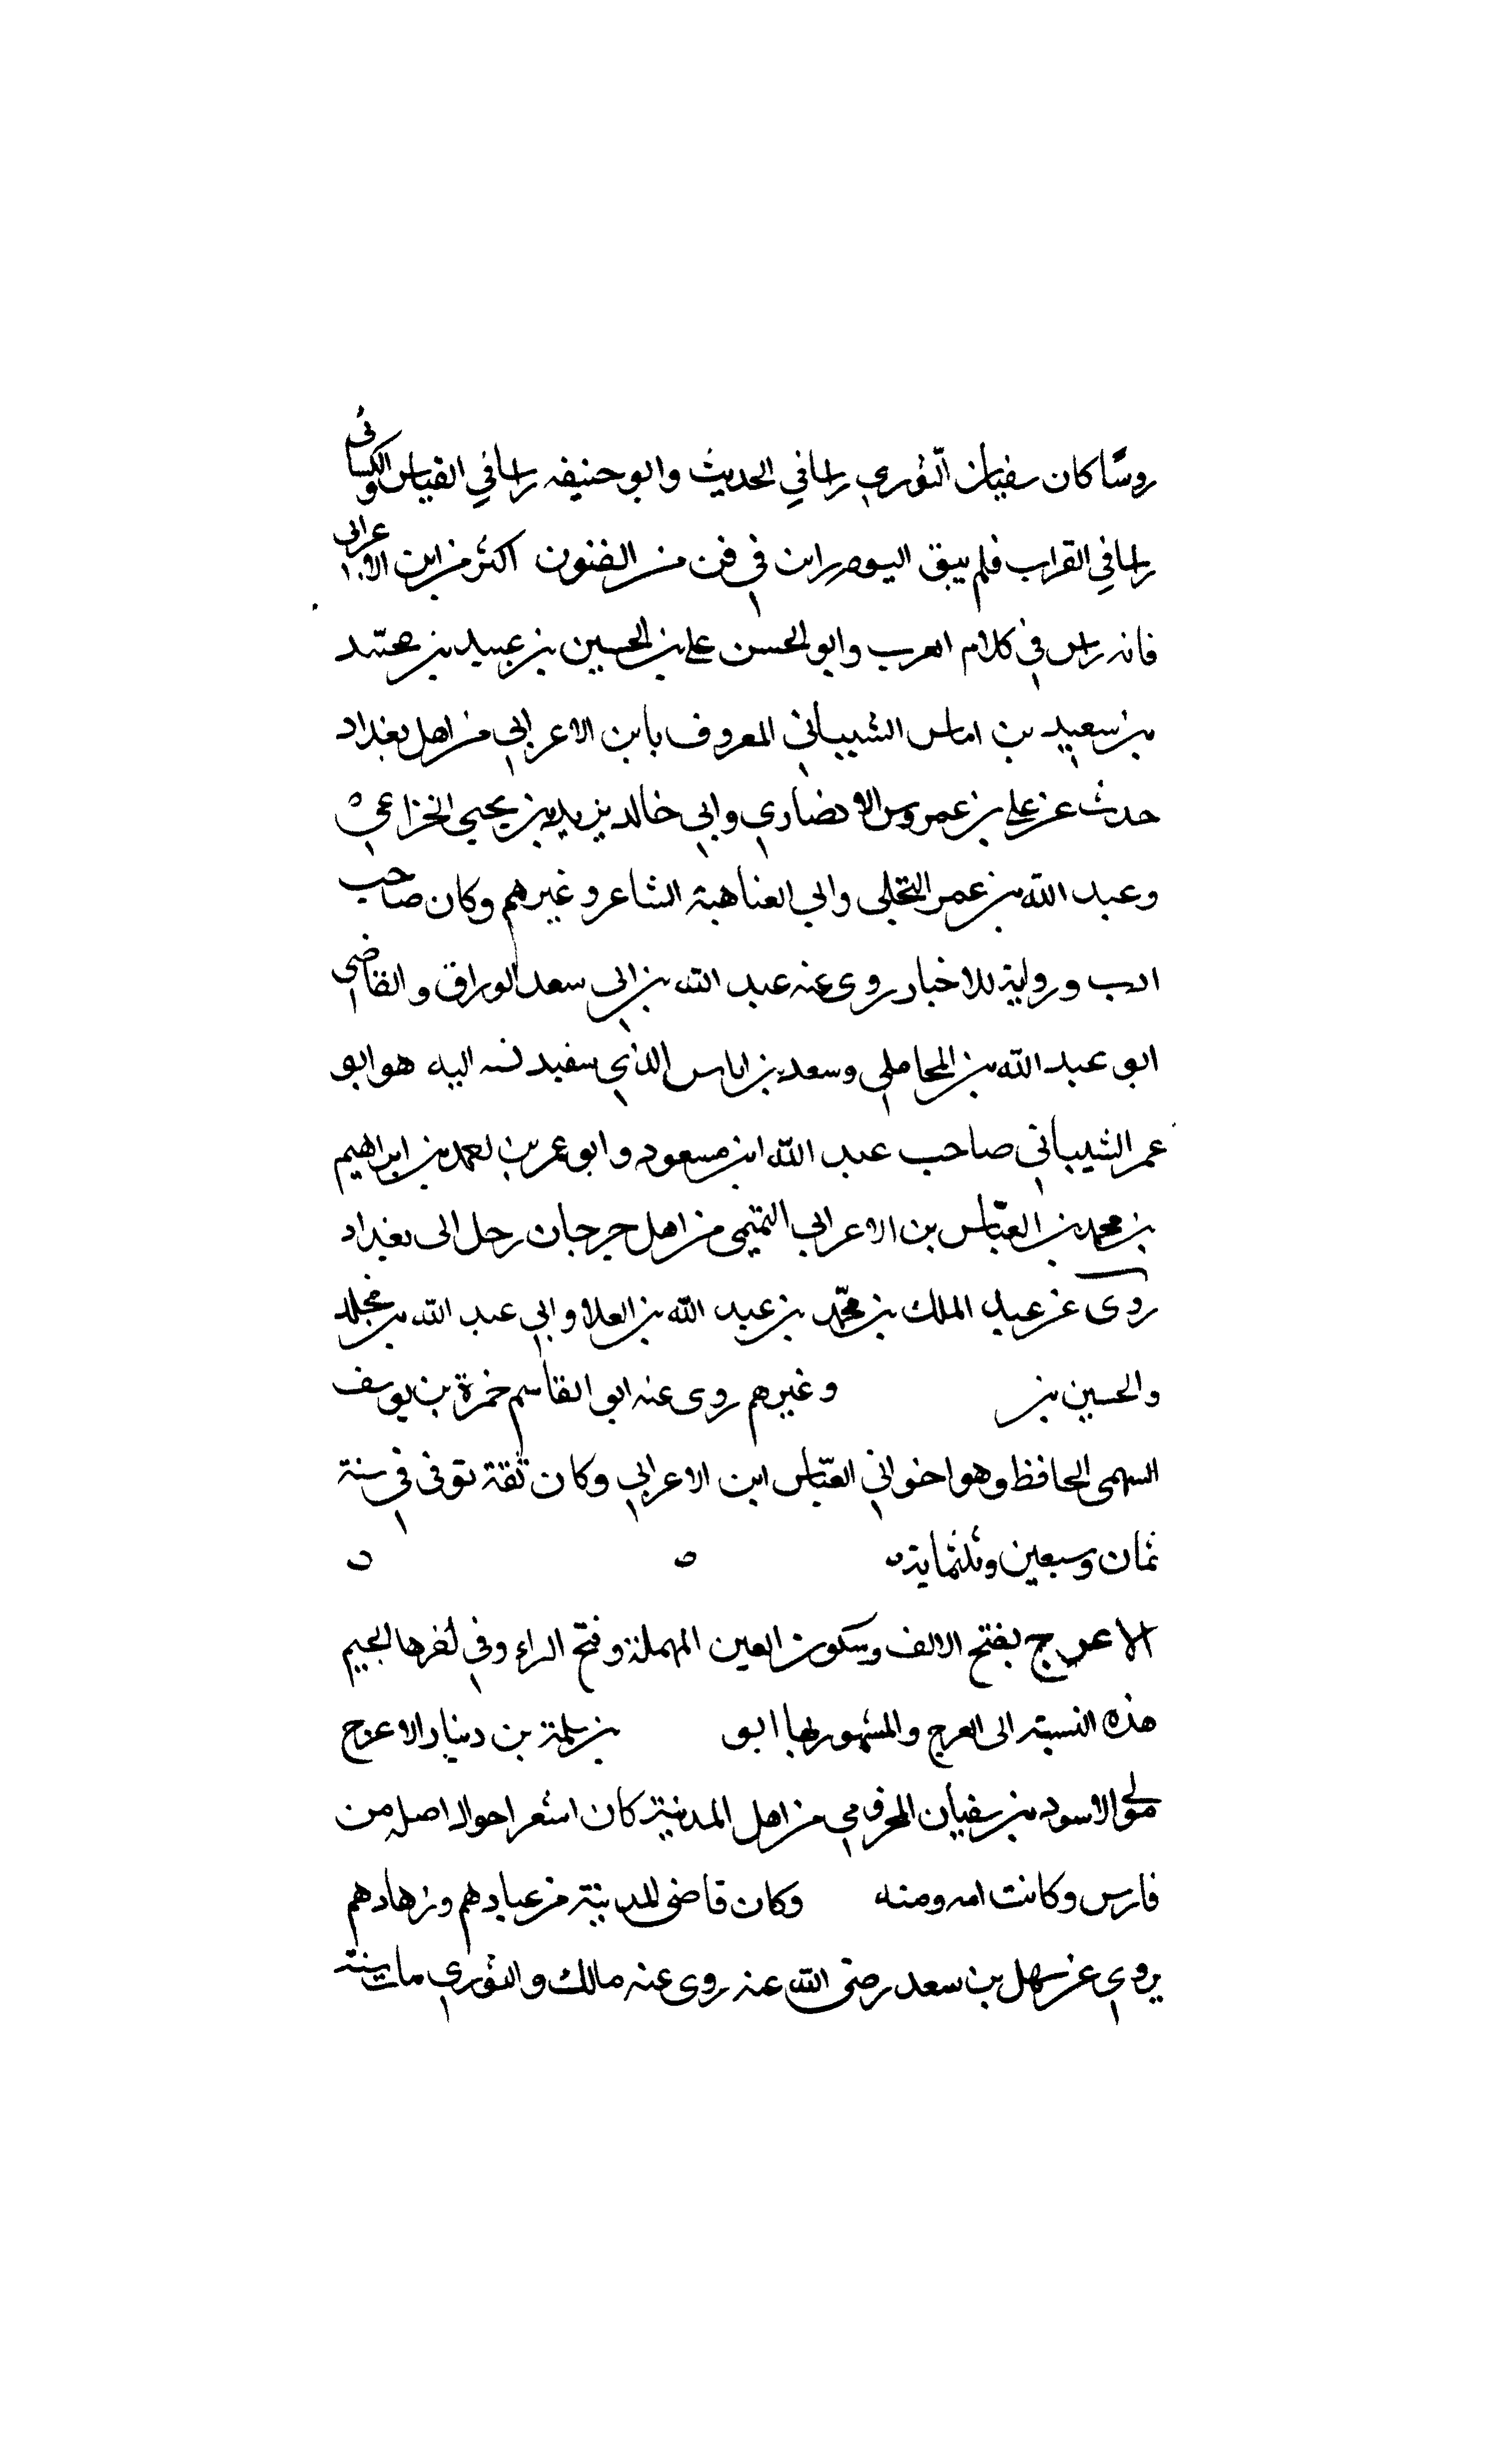 روسًا كان سفيان الثوري راسا في الحديث وابو حنيفه راسا في القياس والكسائي
راسا في القران فلم يبق اليوم راس في فن من الفنون اكثر من ابن الاعرابي
فانه راس في كلام العرب وابو الحسن علي بن الحسين بن عبيد بن محمد
بن سعيد بن اماس الشيباني المعروف بابن الاعرابي من اهل بغداد
حدث عن علي بن عمروس الانصاري وابي خالد يزيد بن يحيى الخزاعي
وعبد الله بن عمر البجلي وابي العتاهية الشاعر وغيرهم وكان صاحب
ادب ورواية للاخبار روى عنه عبد الله بن ابي سعد الوراق والقاضي
ابو عبد الله بن المحاملي وسعد بن اياس الذي سفيد نسبه اليه هو ابو
عمر الشيباني صاحب عبد الله ابن مسعود وابو عمر بن احمد بن ابراهيم
بن محمد بن العباس بن الاعرابي التميمي من اهل جرجان رحل الى بغداد
روى عن عبد الملك بن محمد بن عبد الله بن العلا وابي عبد الله بن مخلد
والحسين بن وغيرهم روى عنه ابو القاسم حمزة بن يوسف
السهمي الحافظ وهو اخو ابي العباس ابن الاعرابي وكان ثقة توفى في سنة
ثمان وسبعين وثلثماية
الاعرج بفتح الالف وسكون العين المهملة وفتح الراء وفي اخرها الجيم
هذه النسبة الى العرج والمشهور بها ابو بن سلمة بن دينار الاعرج
مولى الاسود بن سفيان المخزومي من اهل المدينة كان اشعر احول اصله من
فارس وكانت امه رومية وكان قاضي المدينة من عبادهم وزهادهم
يروي عن سهل بن سعد رضى الله عنه روى عنه مالك والثوري مات سنة